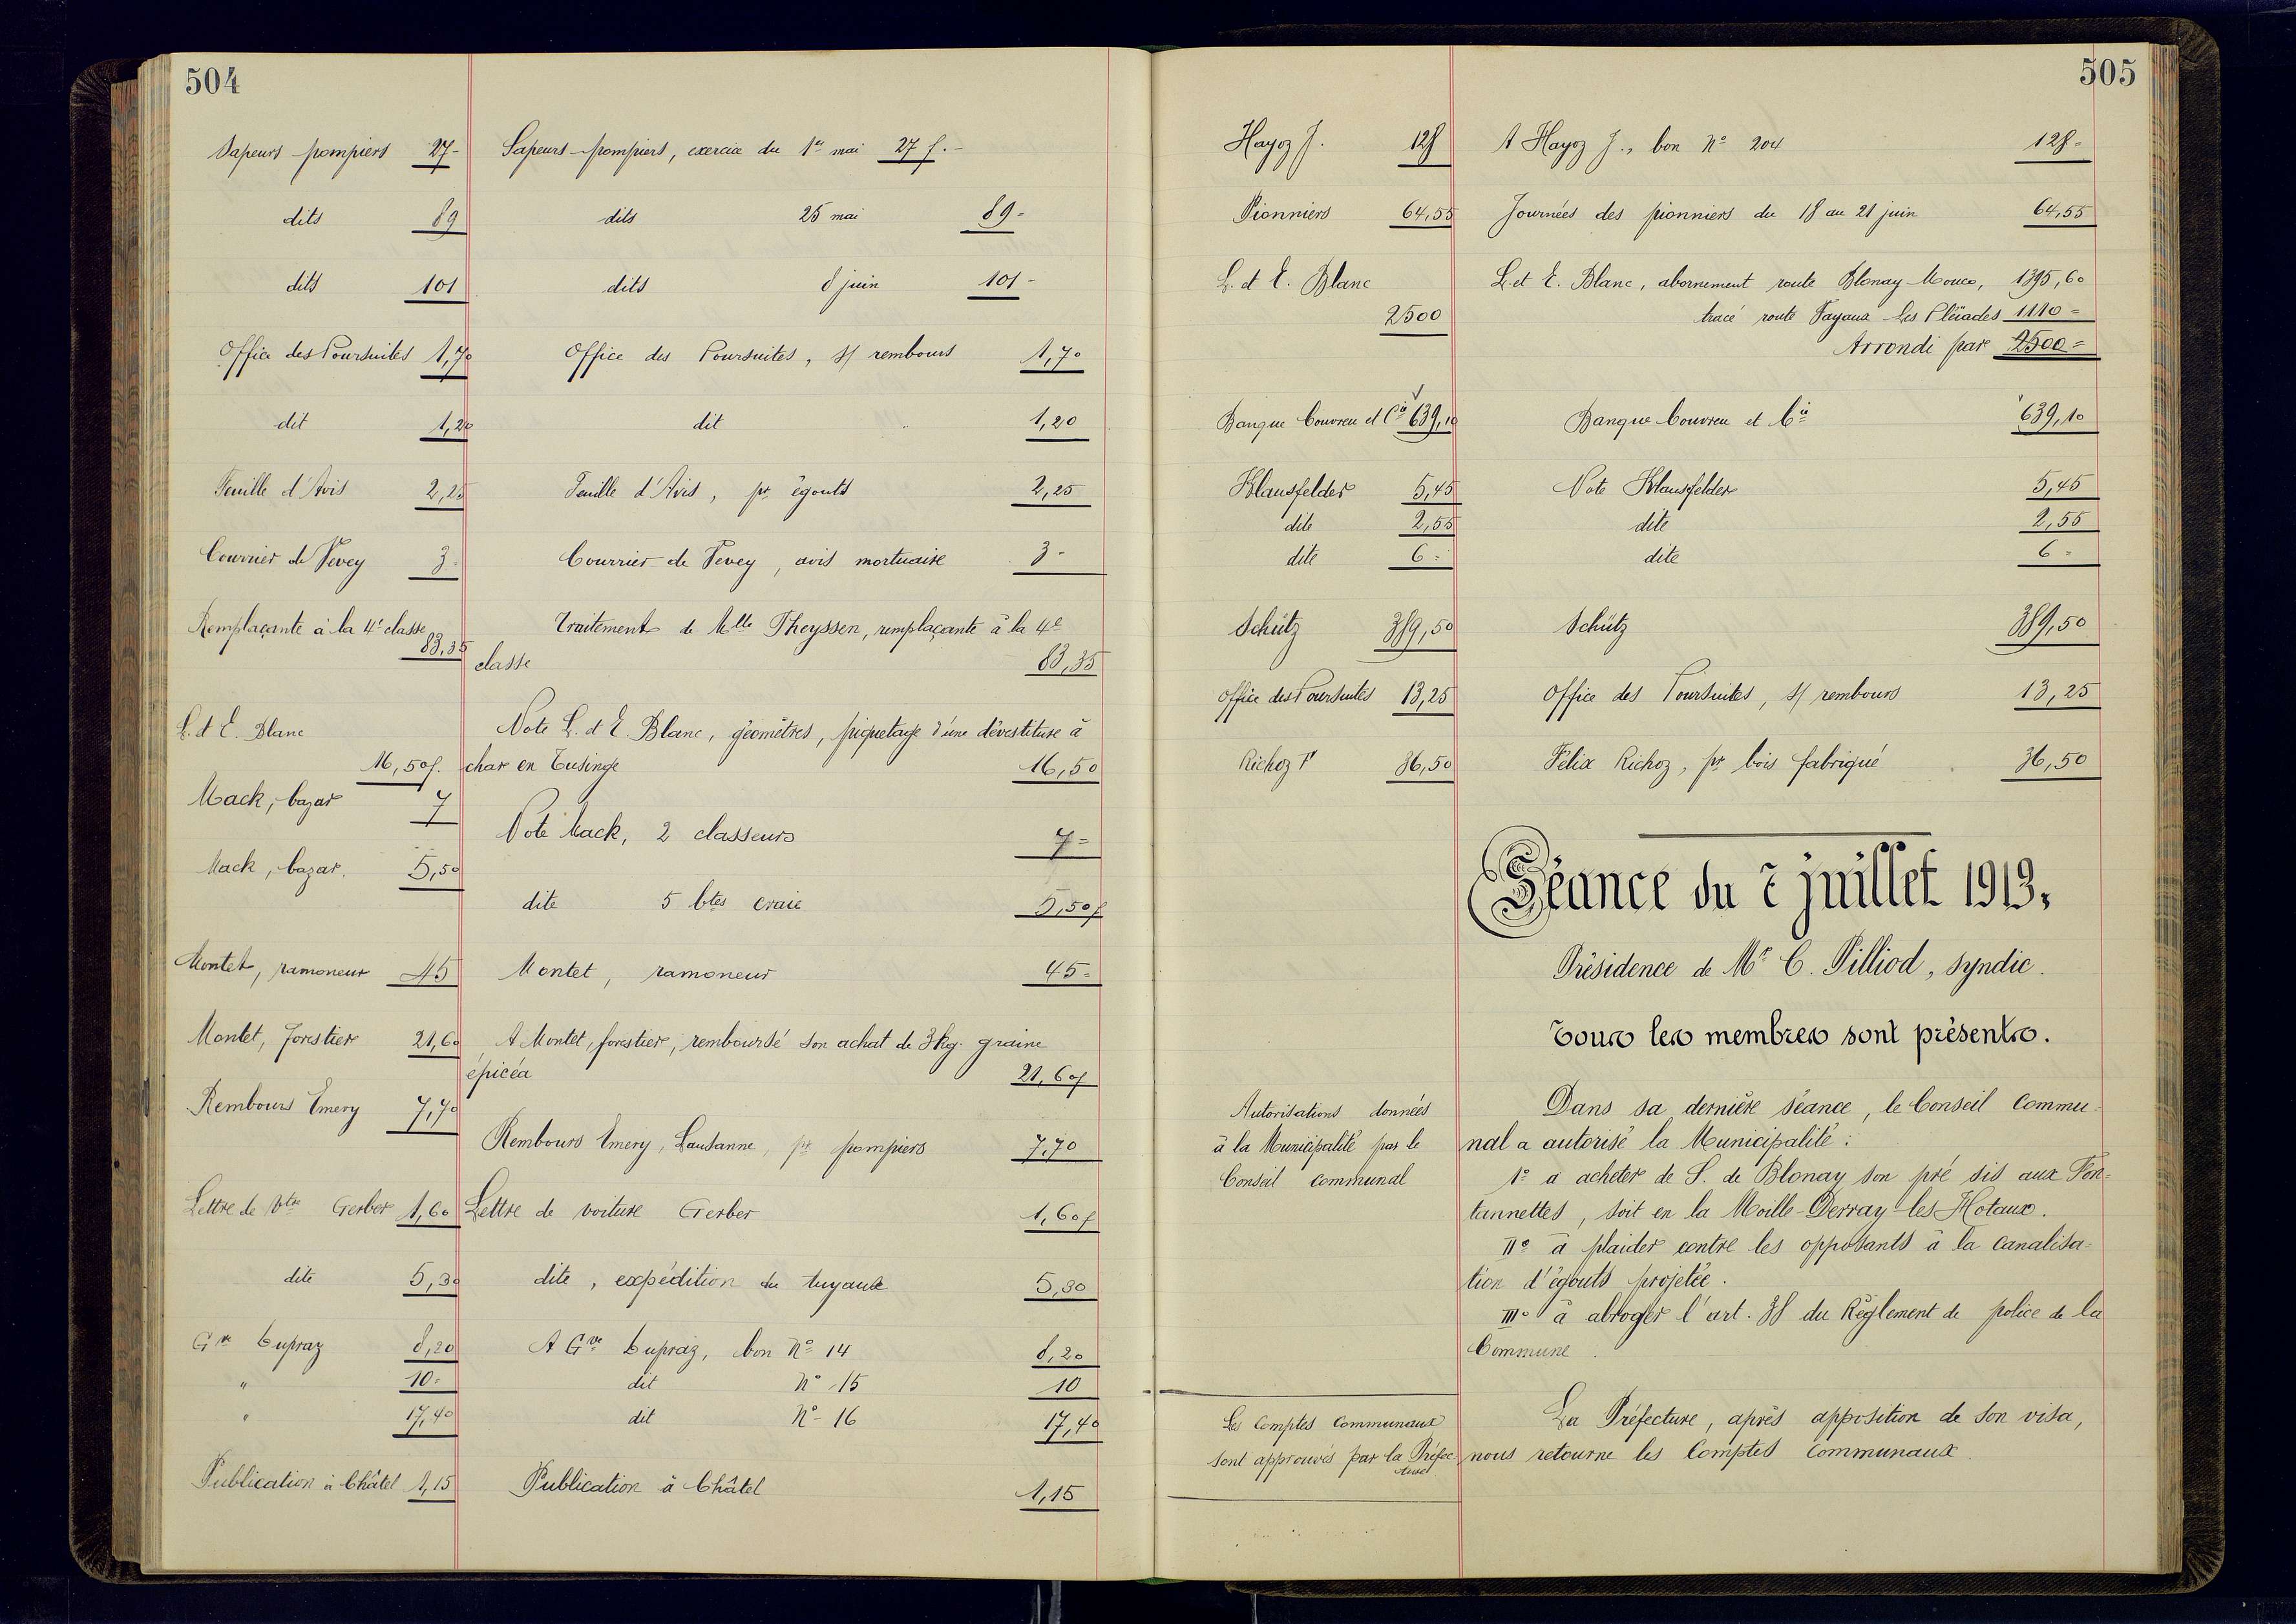 504
Sapeurs-pompiers 27- Sapeurs-pompiers, exercice du 1er mai 27 f.-
dits 89 dits 25 mai 89-
dits 101 dits 8 juin 101-
Office des Poursuites 1,70 Office des Poursuites, s/ rembours 1,70
dit 1,20 dit 1,20
Feuille d'Avis 2,25 Feuille d'Avis, pr égouts 2,25
Courrier de Vevey 3- Courrier de Vevey, avis mortuaire 3-
Remplaçante à la 4e classe Traitement de Mlle Theyssen, remplaçante à la 4e
83,35 classe 83,35
L. et E. Blanc Note L. et E. Blanc, géomètres, piquetage d'une dévestiture à
16,50f. char en Tusinge 16,50
Mack, bazar 7 Note Mack, 2 classeurs 7-
Mack, bazar. 5,50 dite 5 btes craie 5,50f
Montet, ramoneur 45 Montet, ramoneur 45-
Montet, forestier 21,60 A Montet, forestier, remboursé son achat de 3kg. graine
épicéa 21,60f
Rembours Emery 7,70 Rembours Emery, Lausanne, pr pompiers 7,70
Lettre de vtre Gerber 1,60 Lettre de voiture Gerber 1,60f
dite 5,30 dite, expédition de tuyaux 5,30
Gve Dupraz 8,20 A Gve Dupraz, bon No 14 8,20
" 10- dit No 15 10
" 17,40 dit No 16 17,40
Publication à Châtel 1,15 Publication à Châtel 1,15
505
Hayoz J. 128 A Hayoz J., bon No 204 128-
Pionniers 64,55 Journées des pionniers du 18 au 21 juin 64,55
L. et E. Blanc L. et E. Blanc, abornement route Blonay-Mouce, 1395,60
2500 tracé route Fayaux-Les Pléiades 1110-
Arrondi par 2500-
Banque Couvreu et Cie 639,10 Banque Couvreu et Cie 639,10
Klausfelder 5,45 Note Klausfelder 5,45
dite 2,55 dite 2,55
dite 6- dite 6-
Schütz 389,50 Schütz 389,50
Office des Poursuites 13,25 Office des Poursuites, s/ rembours 13,25
Richoz F 36,50 Félix Richoz, pr bois fabriqué 36,50
Séance du 7 juillet 1913.
Présidence de Mr C. Pilliod, syndic.
Tous les membres sont présents.
Autorisations données
à la Municipalité par le
Conseil communal
Dans sa dernière séance, le Conseil Commu-
nal a autorisé la Municipalité :
1o à acheter de S. de Blonay son pré sis aux Fon-
tannettes, soit en la Moille-Derray-les-Hotaux.
IIo à plaider contre les opposants à la canalisa-
tion d'égouts projetée.
IIIo à abroger l'art. 38 du Règlement de police de la
Commune.
Les Comptes Communaux
sont approuvés par la Préfec-
ture
La Préfecture, après apposition de son visa,
nous retourne les Comptes Communaux.